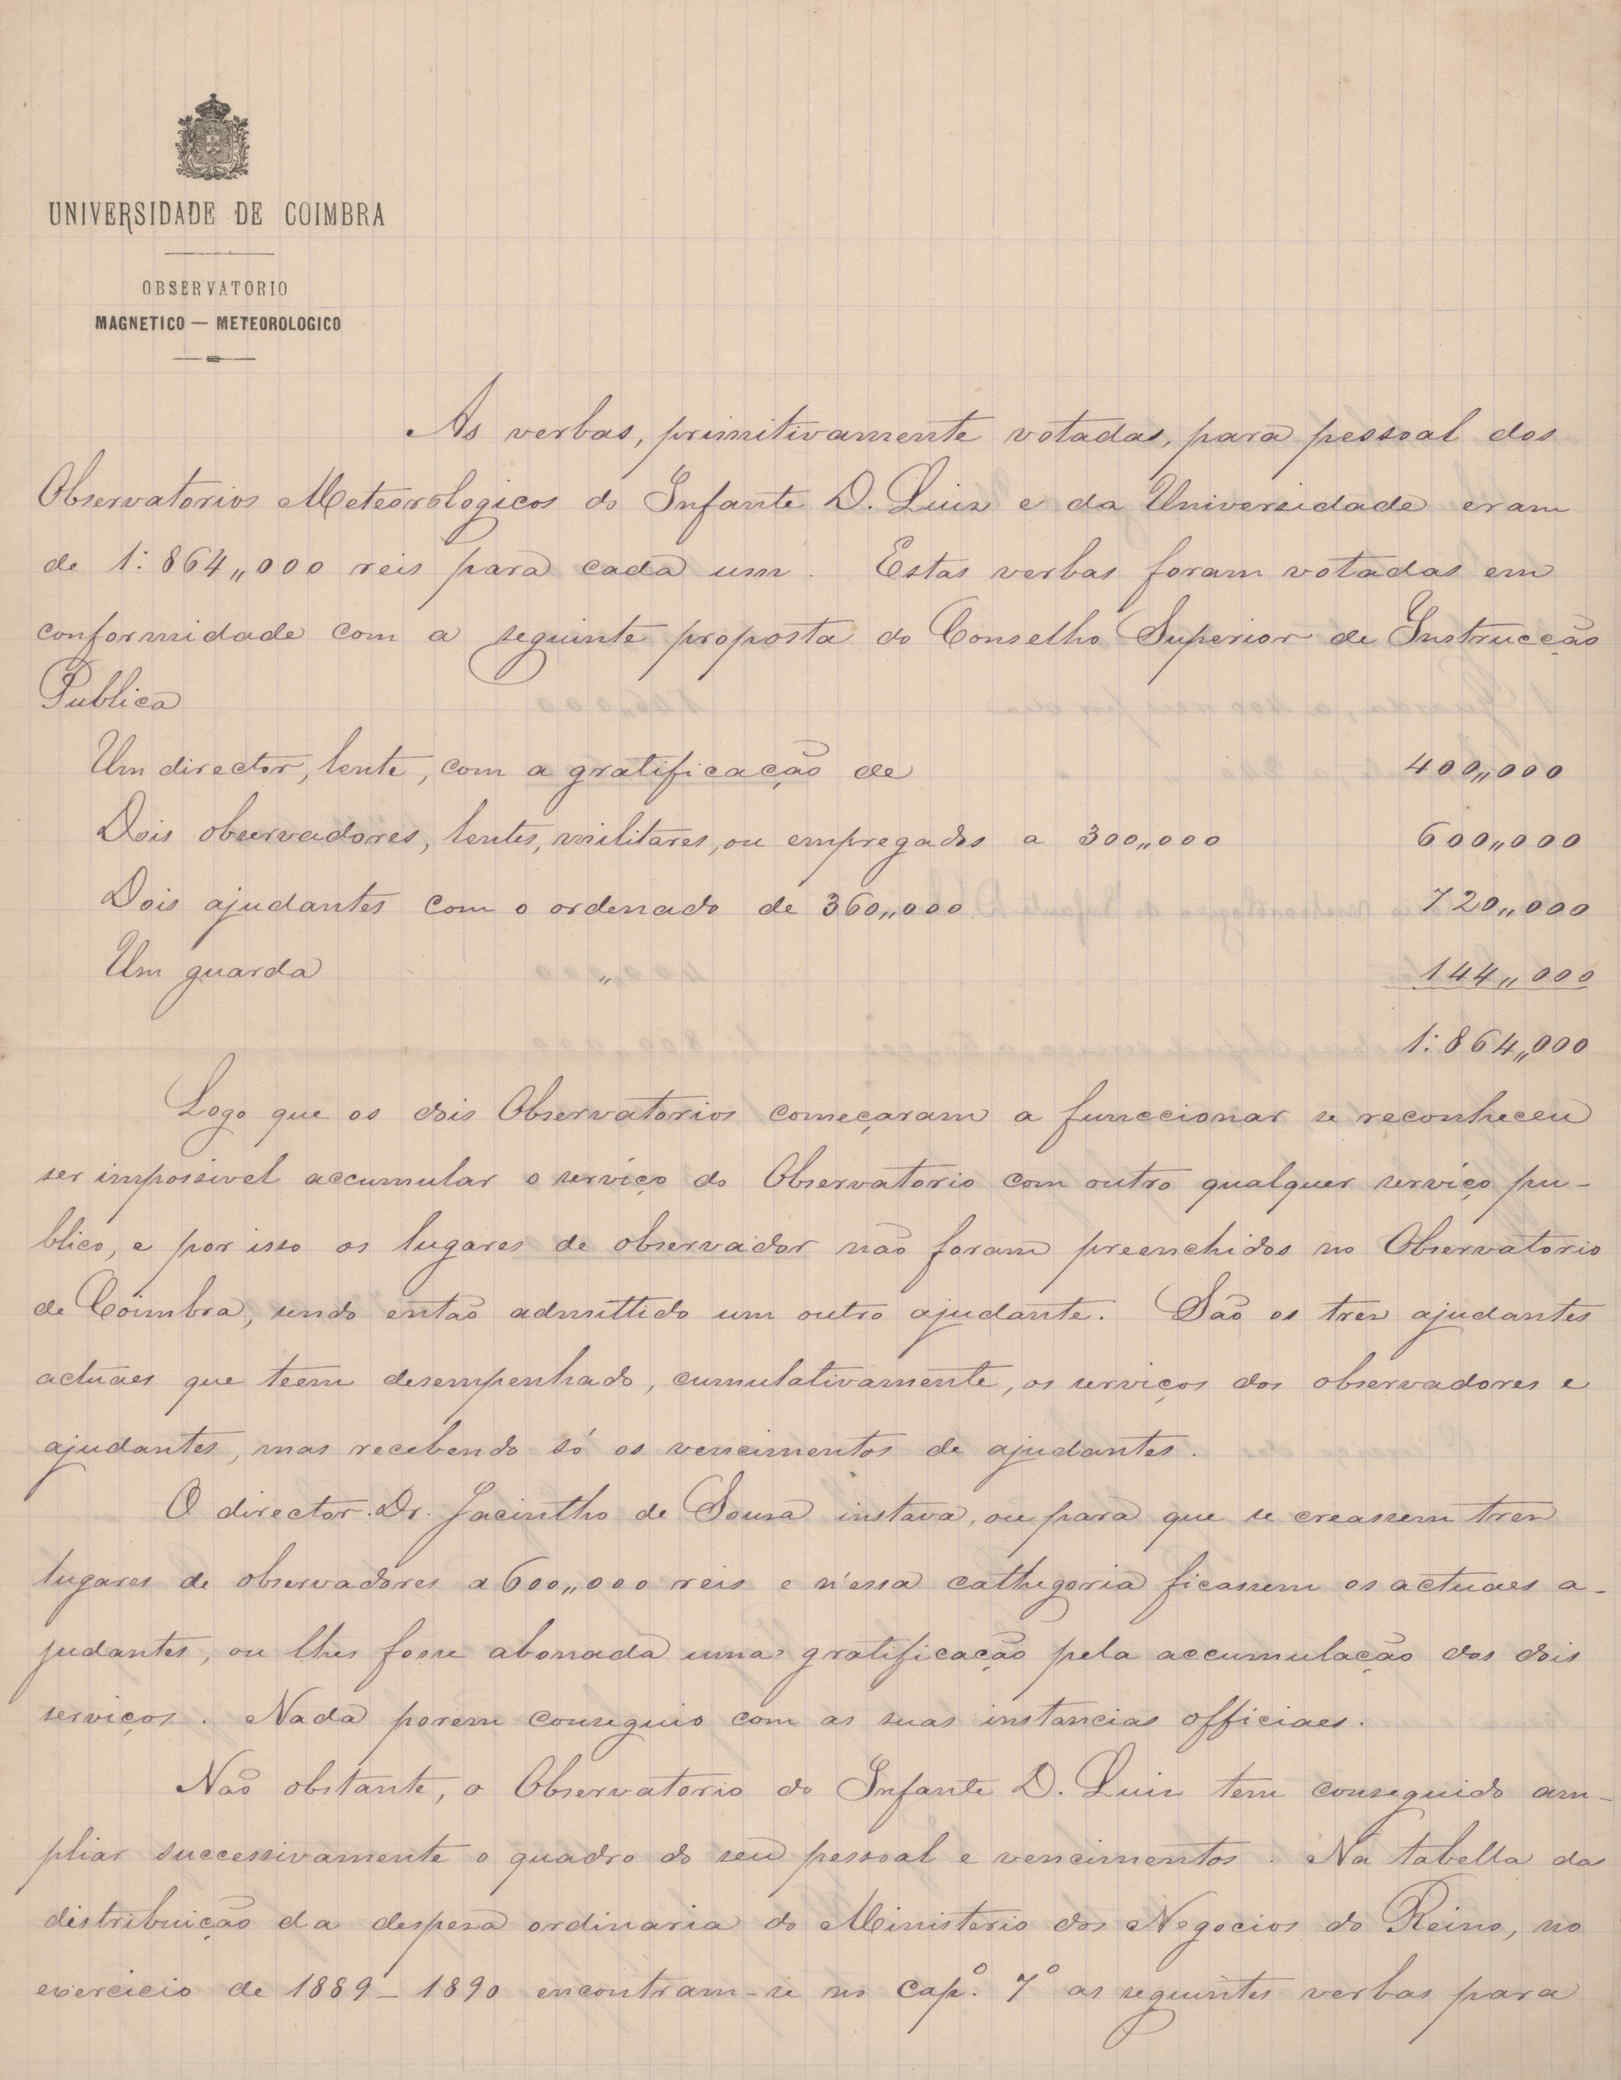 UNIVERSIDADE DE COIMBRA
OBSERVATORIO
MAGNETICO — METEOROLOGICO
As verbas, primitivamente votadas, para pessoal dos
Observatorios Meteorologicos do Infante D. Luiz e da Universidade eram
de 1:864,,000 reis para cada um. Estas verbas foram votadas em
conformidade com a seguinte proposta do Conselho Superior de Instrucção
Publica
Um director, lente, com a gratificação de 400,,000
Dois observadores, lentes, militares, ou empregados a 300,,000 600,,000
Dois ajudantes com o ordenado de 360,,000 720,,000
Um guarda " 144,,000
1:864,,000
Logo que os dois Observatorios começaram a funccionar se reconheceu
ser impossivel accumular o serviço do Observatorio com outro qualquer serviço pu-
blico, e por isso os lugares de observador não foram preenchidos no Observatorio
de Coimbra, sendo então admittido um outro ajudante. São os tres ajudantes
actuaes que teem desempenhado, cumulativamente, os serviços dos observadores e
ajudantes, mas recebendo só os vencimentos de ajudantes.
O director Dr. Jacintho de Sousa instava, ou para que se creassem tres
lugares de observadores a 600,,000 reis e n'essa cathegoria ficassem os actuaes a-
judantes, ou lhes fosse abonada uma gratificação pela accumulação dos dois
serviços. Nada porem conseguio com as suas instancias officiaes.
Não obstante, o Observatorio do Infante D. Luiz tem conseguido am-
pliar successivamente o quadro do seu pessoal e vencimentos. Na tabella da
distribuição da despesa ordinaria do Ministerio dos Negocios do Reino, no
exercicio de 1889-1890 encontram-se no cap.º 7º as seguintes verbas para